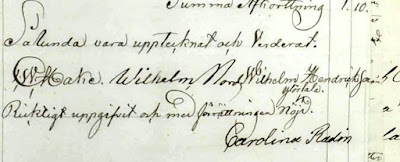 Summa Afkortning 1.10.
Sålunda vara upptecknat och Värderat.
W. Hake. Wilhelm Nord, Wilhelm Hendrichs
Riktigt uppgifvit och med förrättningen Nöjd.
Carolina Radon